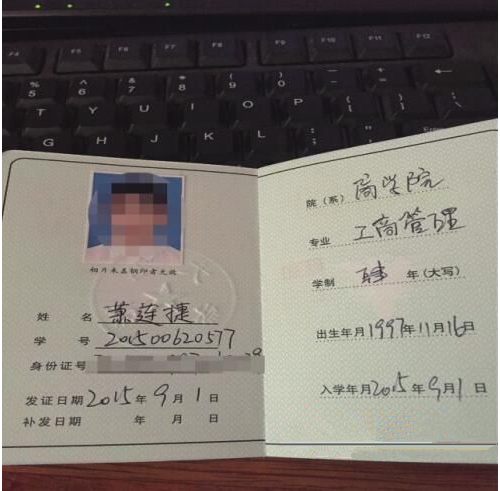 F4 F5 F6 F7 F8 F9 F10 F11 F12
% 5 ^ 6 & 7 * 8 ( 9 ) 0
T Y U I O P
G H J K L
相片未盖钢印者无效
姓 名 萧连捷
学 号 201500620577
身份证号
发证日期 2015 年 9 月 1 日
补发日期 年 月 日
院（系） 商学院
专业 工商管理
学制 肆 年（大写）
出生年月 1997年11月16日
入学年月 2015年9月1日